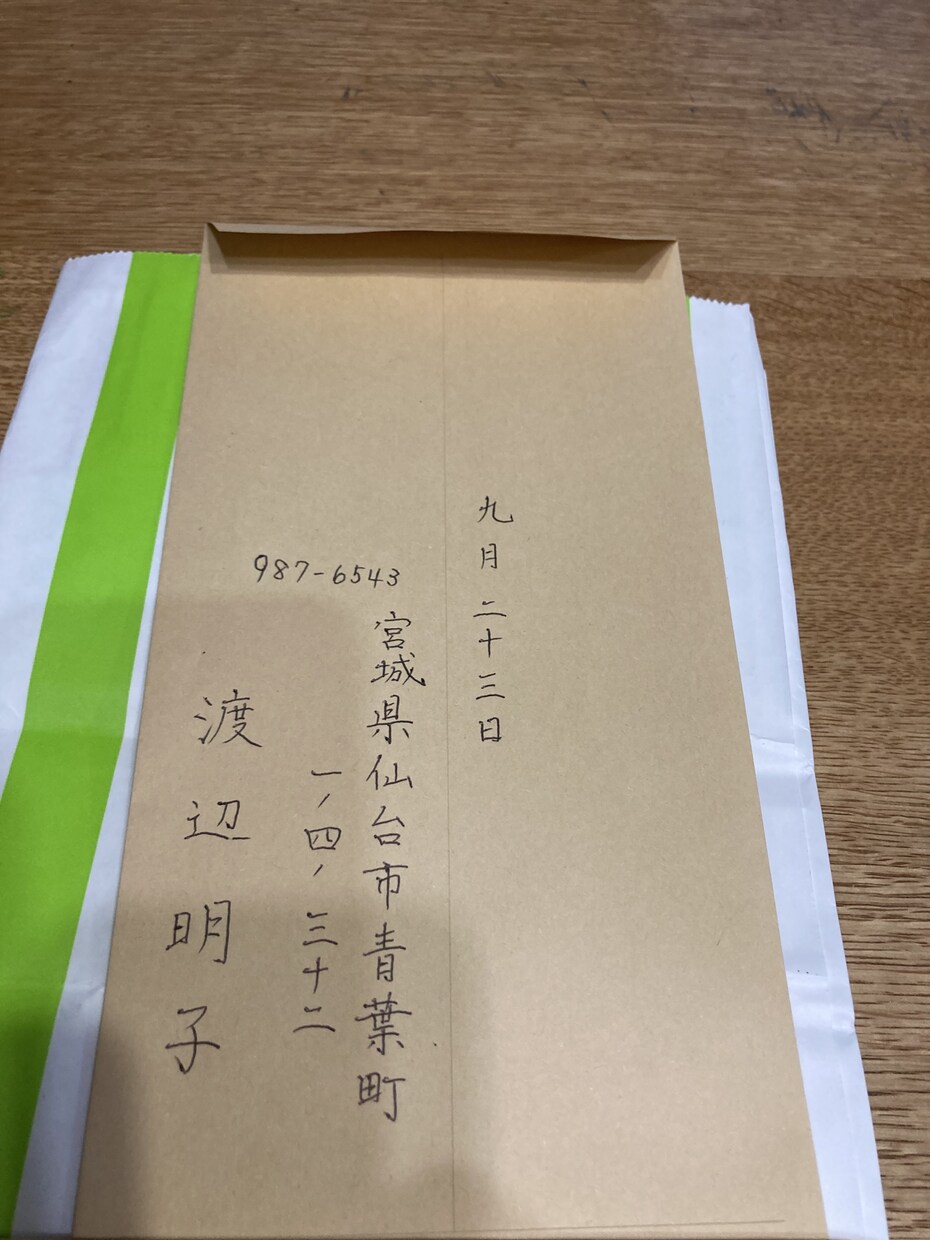 九月二十三日
987-6543
宮城県仙台市青葉町
一、四、三十二
渡辺明子